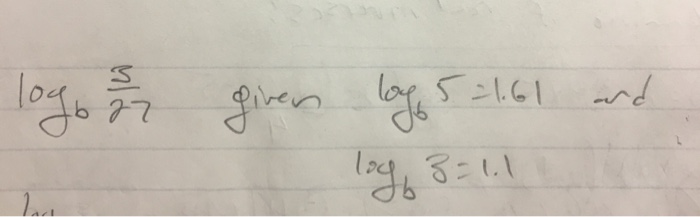 log_b 5/27 given log_b 5 = 1.61 and
log_b 3 = 1.1